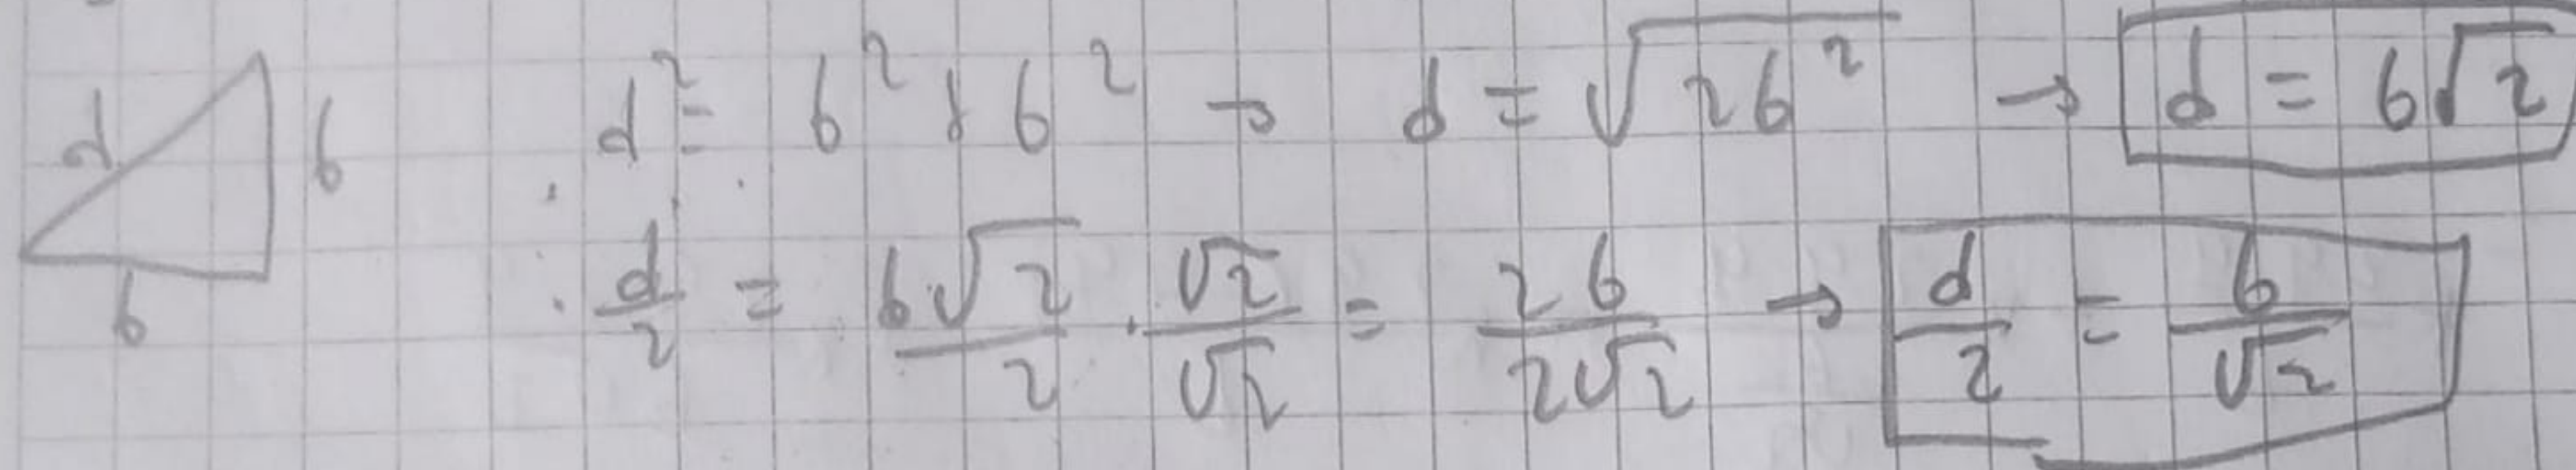 d
b
b
d² = b² + b² → d = √(2b²) → d = b√2
· d/2 = b√2/2 · √2/√2 = 2b/2√2 → d/2 = b/√2